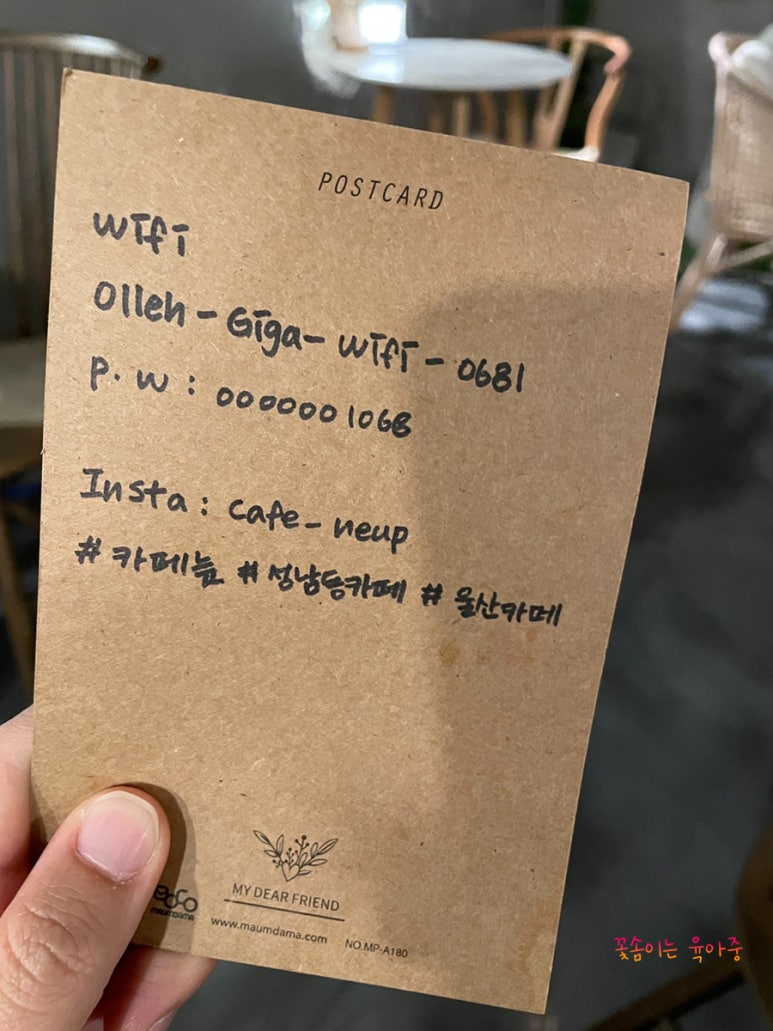 POSTCARD
wifi
Olleh-Giga-wifi-0681
P.w: 0000001068
Insta: cafe_neup
#카페늪 #성남동카페 #울산카페
MY DEAR FRIEND
MAUMDAMA
www.maumdama.com NO.MP-A180
꽃솜이는 육아중